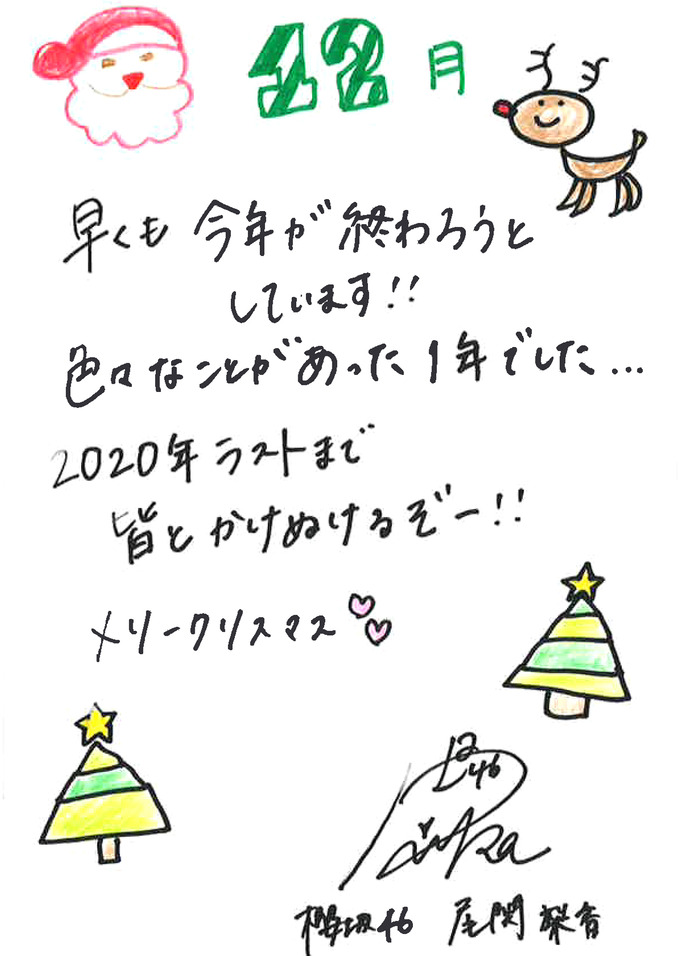 12月
早くも 今年が終わろうと
しています!!
色々なことがあった1年でした...
2020年ラストまで
皆とかけぬけるぞー!!
メリークリスマス
46
櫻坂46 尾関梨香